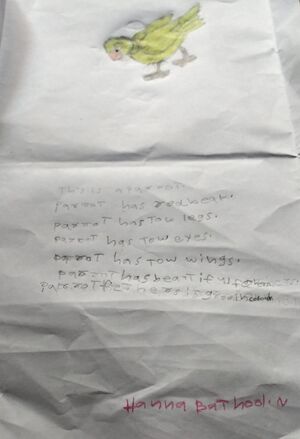 This is a parrot.
parrot has red beak.
parrot has tow legs.
parrot has tow eyes.
parrot has tow wings.
parrot has beartiful
parrot fethers is green
Hanna Bathool. N